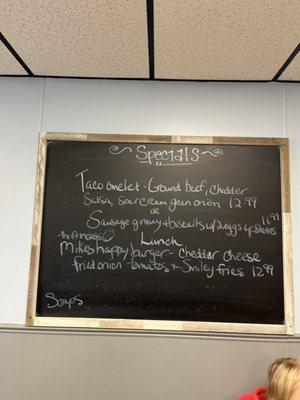 ~ Specials ~
Taco omelet - Ground beef, cheddar
Salsa, Sour cream green onion 12.99
or
Sausage gravy + biscuits w/ 2 eggs + potatoes 11.99
Lunch
Mikes happy burger - cheddar cheese
fried onion tomatoes + Smiley fries 12.99
Soups